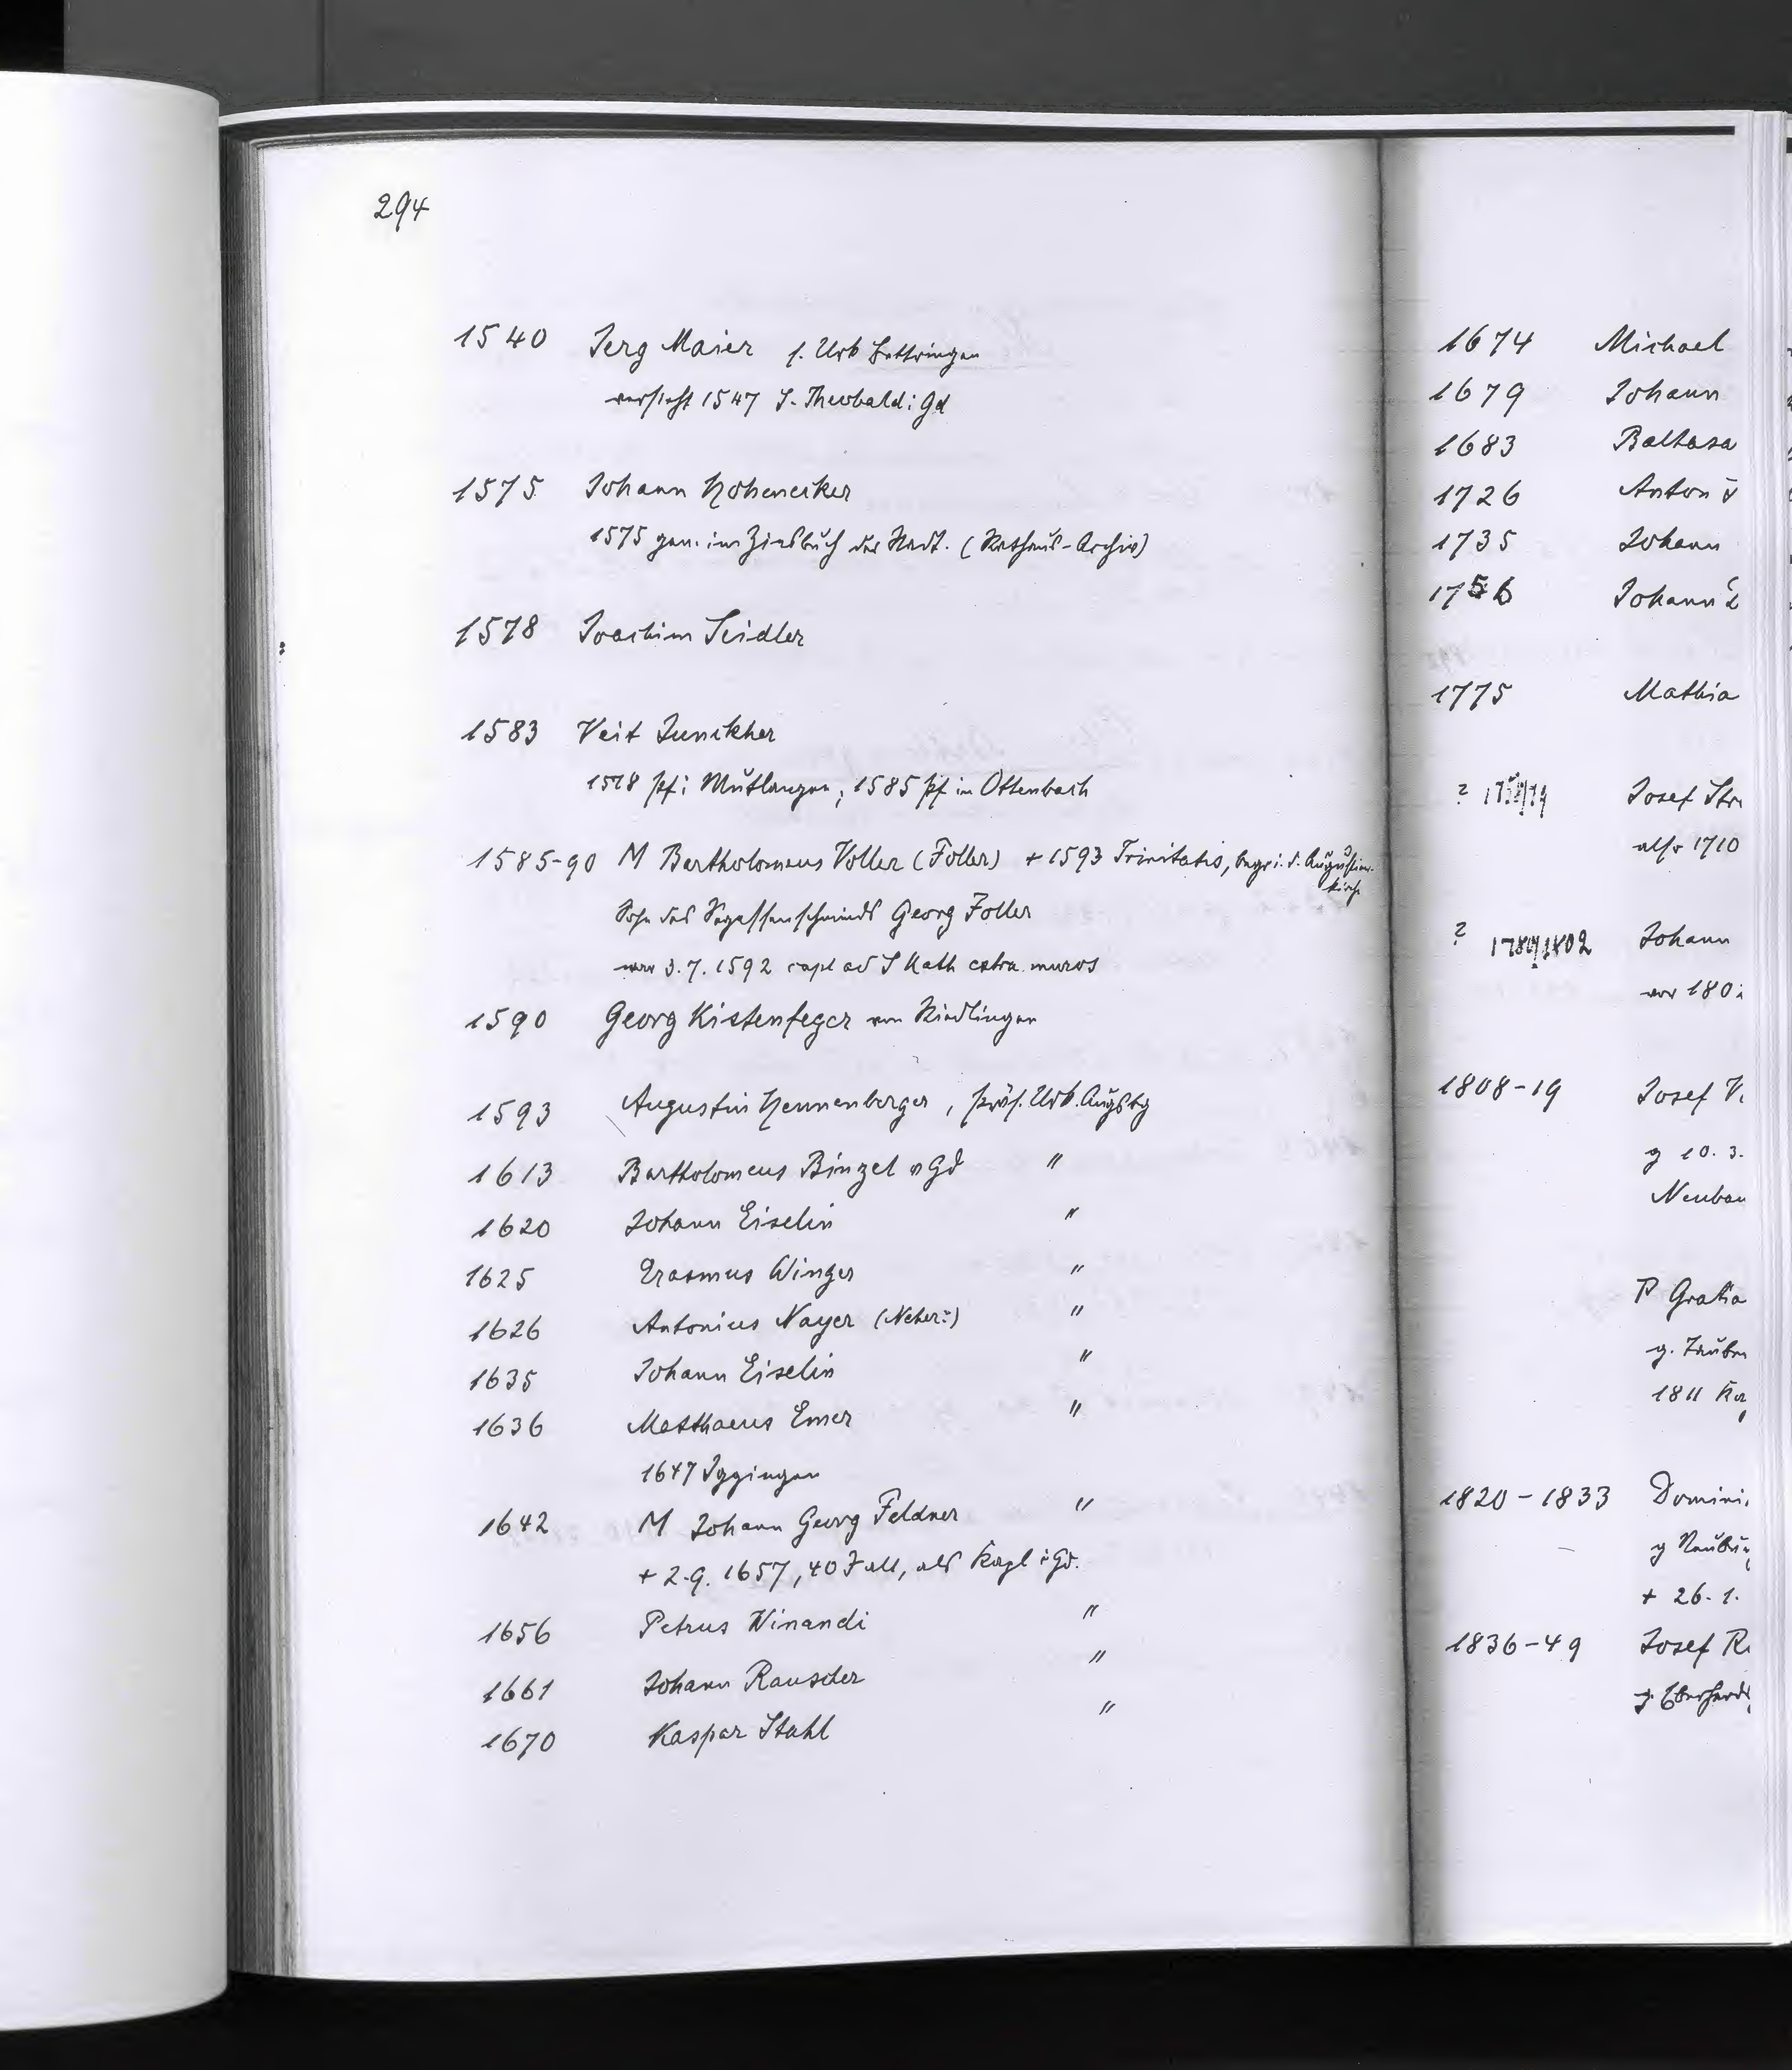 294
1540 Jerg Maier s. Urb Bettringen
versieht 1547 S. Theobald i Gd
1575 Johann Hohenecker
1575 gen. im Zinsbuch der Stadt. (Rathaus-Archiv)
1578 Joachim Seidler
1583 Veit Junckher
1578 Pf i Mutlangen, 1585 Pf in Ottenbach
1585-90 M Bartholomeus Voller (Foller) + 1593 Trinitatis, begr. i. d. Augustiner-
kirche
Sohn des Segessenschmieds Georg Foller
war 3.7.1592 capl ad S Kath extra muros
1590 Georg Kistenfeger von Riedlingen
1593 Augustin Hennenberger, präs. Urb. Augsbg
1613 Bartholomeus Binzel v Gd "
1620 Johann Eiselin "
1625 Erasmus Winger "
1626 Antonius Nayer (Neher?) "
1635 Johann Eiselin "
1636 Matthaeus Emer "
1647 Iggingen
1642 M Johann Georg Feldner "
+ 2.9.1657, 40 J alt, als Kapl i Gd.
1656 Petrus Winandi "
1661 Johann Rauscher "
1670 Kaspar Stahl "
1674 Michael
1679 Johann
1683 Baltasa
1726 Anton
1735 Johann
1756 Johann
1775 Mathia
? Josef Str
also 1710
? 1780/1802 Johann
vor 180
1808-19 Josef V
g 10.3.
Neubau
P Gratia
g.
1811 Ka
1820-1833 Domini
g Neubu
+ 26.1.
1836-49 Josef R
g. Eberhard